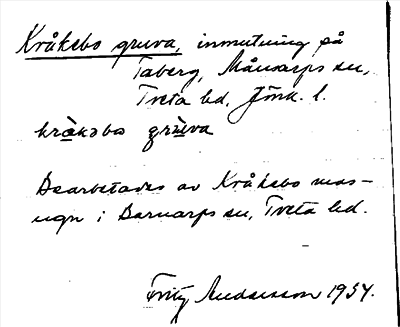 Kråkebo gruva, inmutning på
Taberg, Månsarps sn,
Tveta hd, Jönk. l.
kråkəbo grùva
Bearbetades av Kråkebo mas-
ugn i Barnarps sn, Tveta hd.
Fritz Andersson 1934.